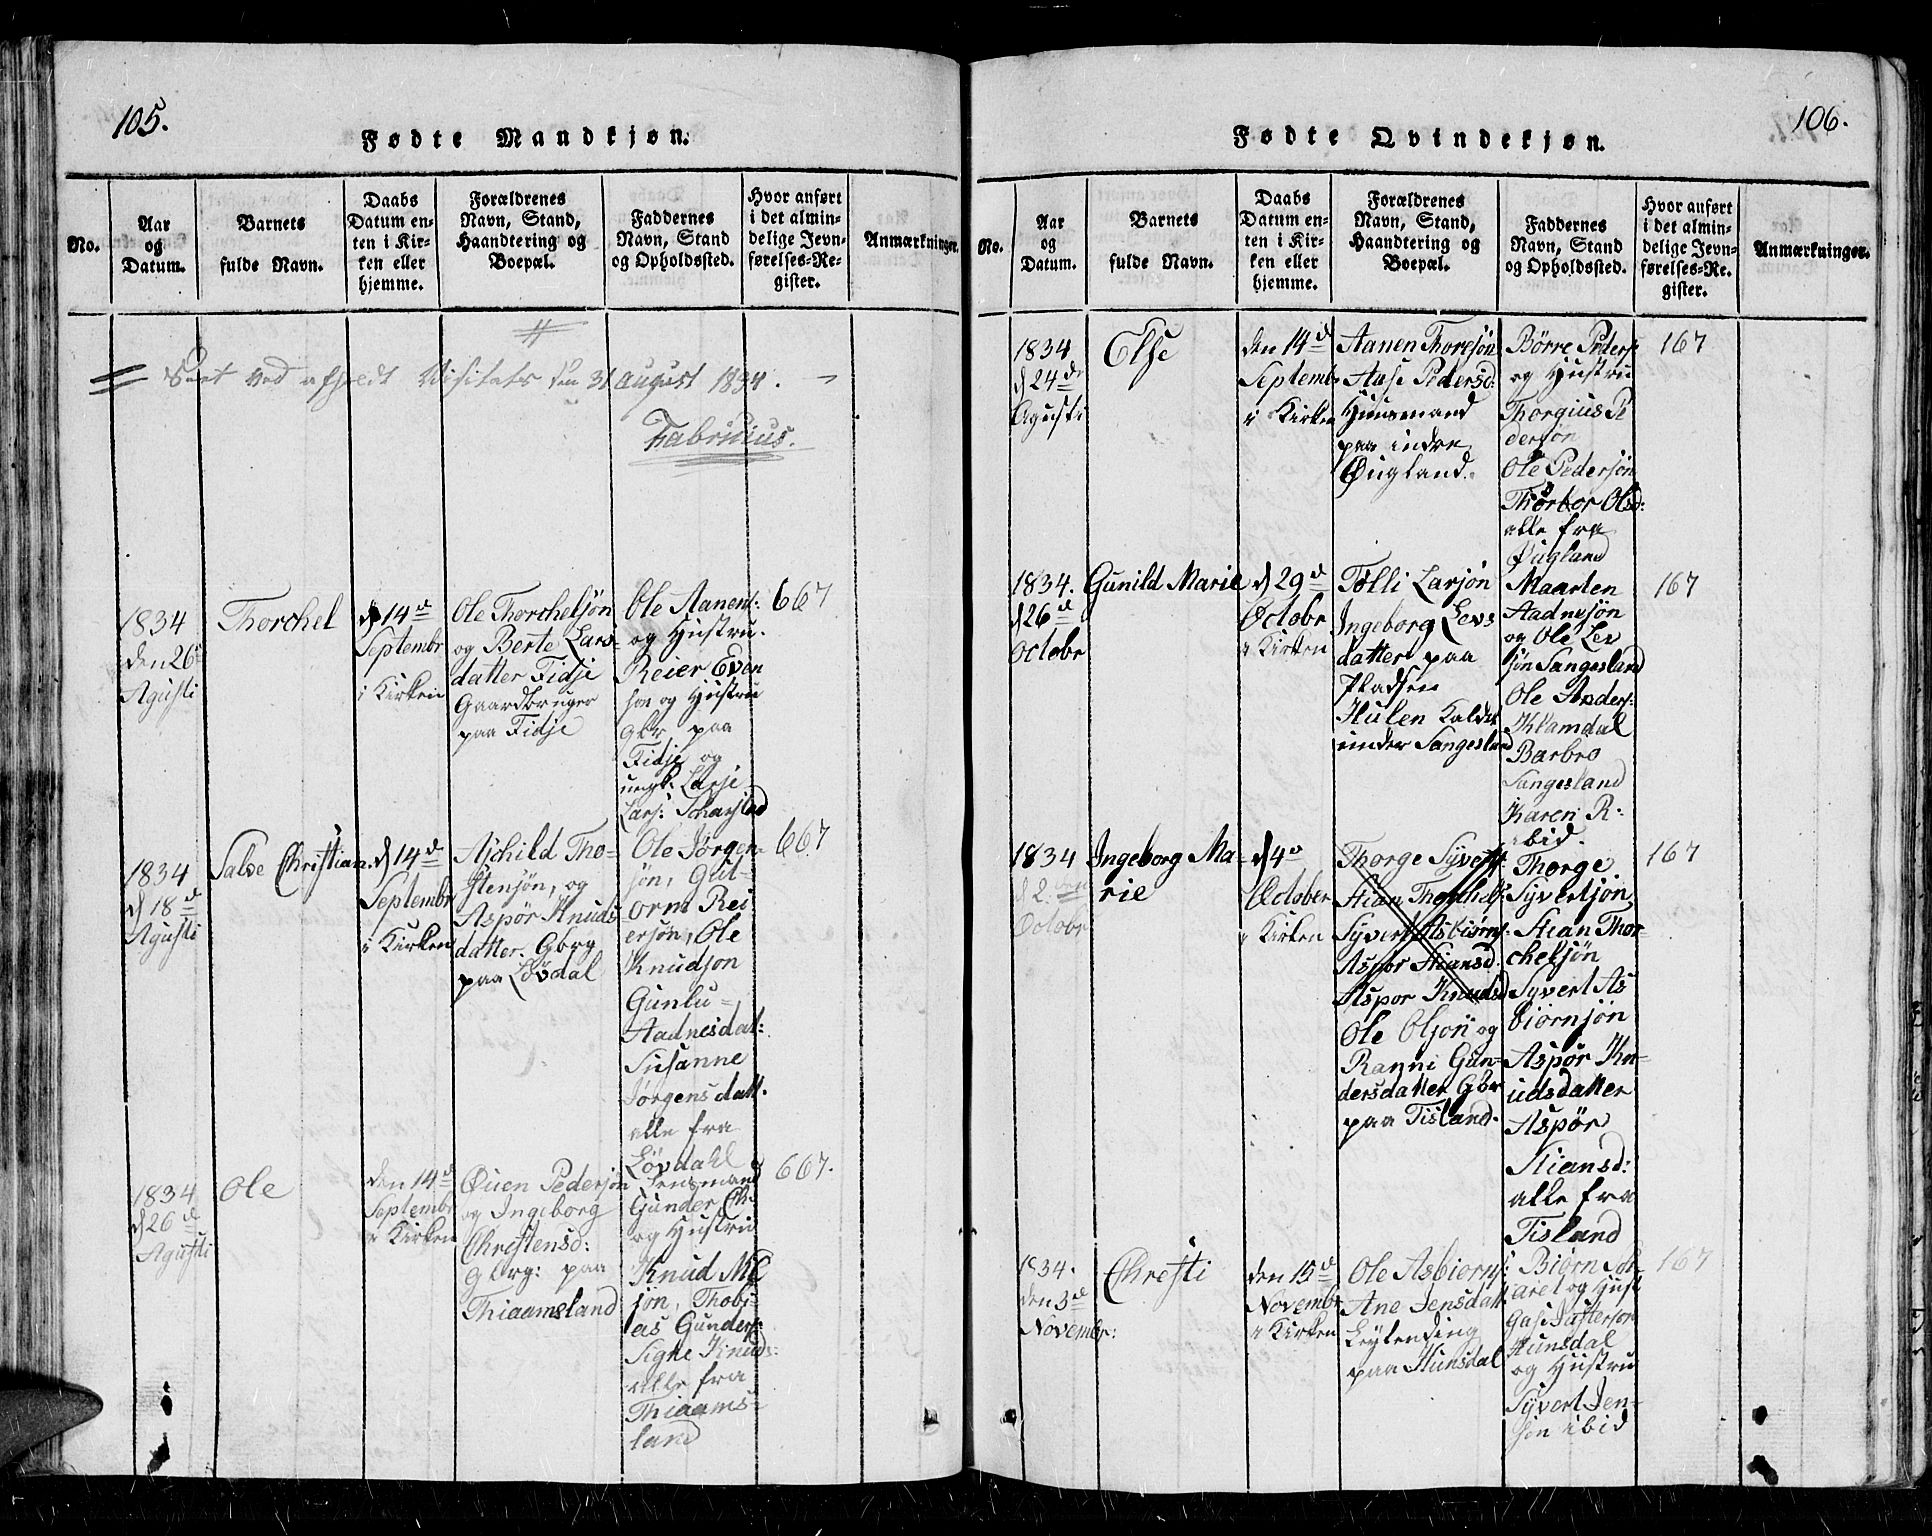 105.
Fødte Mandkjøn.
No.
Aar
og
Datum.
Barnets
fulde Navn.
Daabs
Datum en-
ten i Kir-
ken eller
hjemme.
Forældrenes
Navn, Stand,
Haandtering og
Boepæl.
Faddernes
Navn, Stand
og Opholdssted.
Hvor anført
i det almin-
delige Jevn-
førelses-Re-
gister.
Anmærkninger.
Seet ved afholdt Visitats den 31 August 1834.
Fabricius.
1834
den 26
Agusti
Thorchel
d 14d
Septembr
i Kirken
Ole Thorcheljøn
og Berte Lars-
datter Fidje
Gaardbruger
paa Fidje
Ole Aanens:
og Hustru.
Reier Even
søn og Hustru
gbr paa
Fidje og
ungk: Larse
Lars:
667
1834
d 18d
Agusti
Salve Christian.
d 14d
Septembr
i Kirken
Ajchild Tho-
stensjøn, og
Aspør Knuds
datter. Gbrg
paa Løvdal
Ole Jørgen-
sjøn, Gut-
orm Rei
ersjøn, Ole
Knudsjon
Gunlu-
Aadnesdat:
Susanne
Jørgensdatt.
alle fra
Løvdahl
667
1834
d 26d
Agusti
Ole
den 14d
Septembr
i Kirken
Øuen Pedersjøn
og Ingeborg
Chrestensd:
gbrg: paa
Thiaamsland
Lensmand
Gunder Ch:
og Hustru
Knud
sjøn, Thobi-
as Gunders:
Signe Knuds:
alle fra
Thiaams-
land
667.
106.
Fødte Qvindekjøn.
No.
Aar
og
Datum.
Barnets
fulde Navn.
Daabs
Datum en-
ten i Kir-
ken eller
hjemme.
Forældrenes
Navn, Stand,
Haandtering og
Boepæl.
Faddernes
Navn, Stand
og Opholdssted.
Hvor anført
i det almin-
delige Jevn-
førelses-Re-
gister.
Anmærkninger.
1834
d 24de
Agusti
Else
den 14d
Septembr
i Kirken
Aanen Thoresjøn
Aase Pedersd:
Huusmand
paa indre
Øugland.
Børre Peders
og Hustru
Thorgius Pe
dersjøn
Ole Pedersjøn
Thorbor Olsd:
alle fra
Øugland
167
1834.
d 26d
Octobr
Gunild Marie
d 29d
Octobr
i Kirken
Tolli Larsjøn
Ingeborg Levs
datter paa
Pladsen
Hulen kaldt
under Sangesland
Maarten
Aadnesjøn
og Ole Lev
sjøn Sangesland
Ole Anders:
Klamdal
Barbro
Sangesland
Karen R:
ibid.
167
1834
d 2den
Octobr
Ingeborg Ma-
rie
d 4d
October
i Kirken
Thorge Syverts
Stian Thorchels:
Syvert Asbiørns:
Aspor Stiansd.
Aspor Knudsd
Ole Olsjon og
Ranni Gun-
dersdatter Gbr
paa Tisland.
Thorge
Syvertsjøn
Stian Thor-
chelsjøn
Syvert As
biørnsjøn
Aspør Kn-
udsdatter
Aspør
Stiansd:
alle fra
Tisland
167
1834.
den 3d
Novembr:
Chresti
den 15d
Novembr
i Kirken
Ole Asbiørns:
Ane Jensdatt.
Leylending
paa Hunsdal
Biørn
og Hust
Hunsdal
og Hustru
Syvert Jen-
søn ibid
167